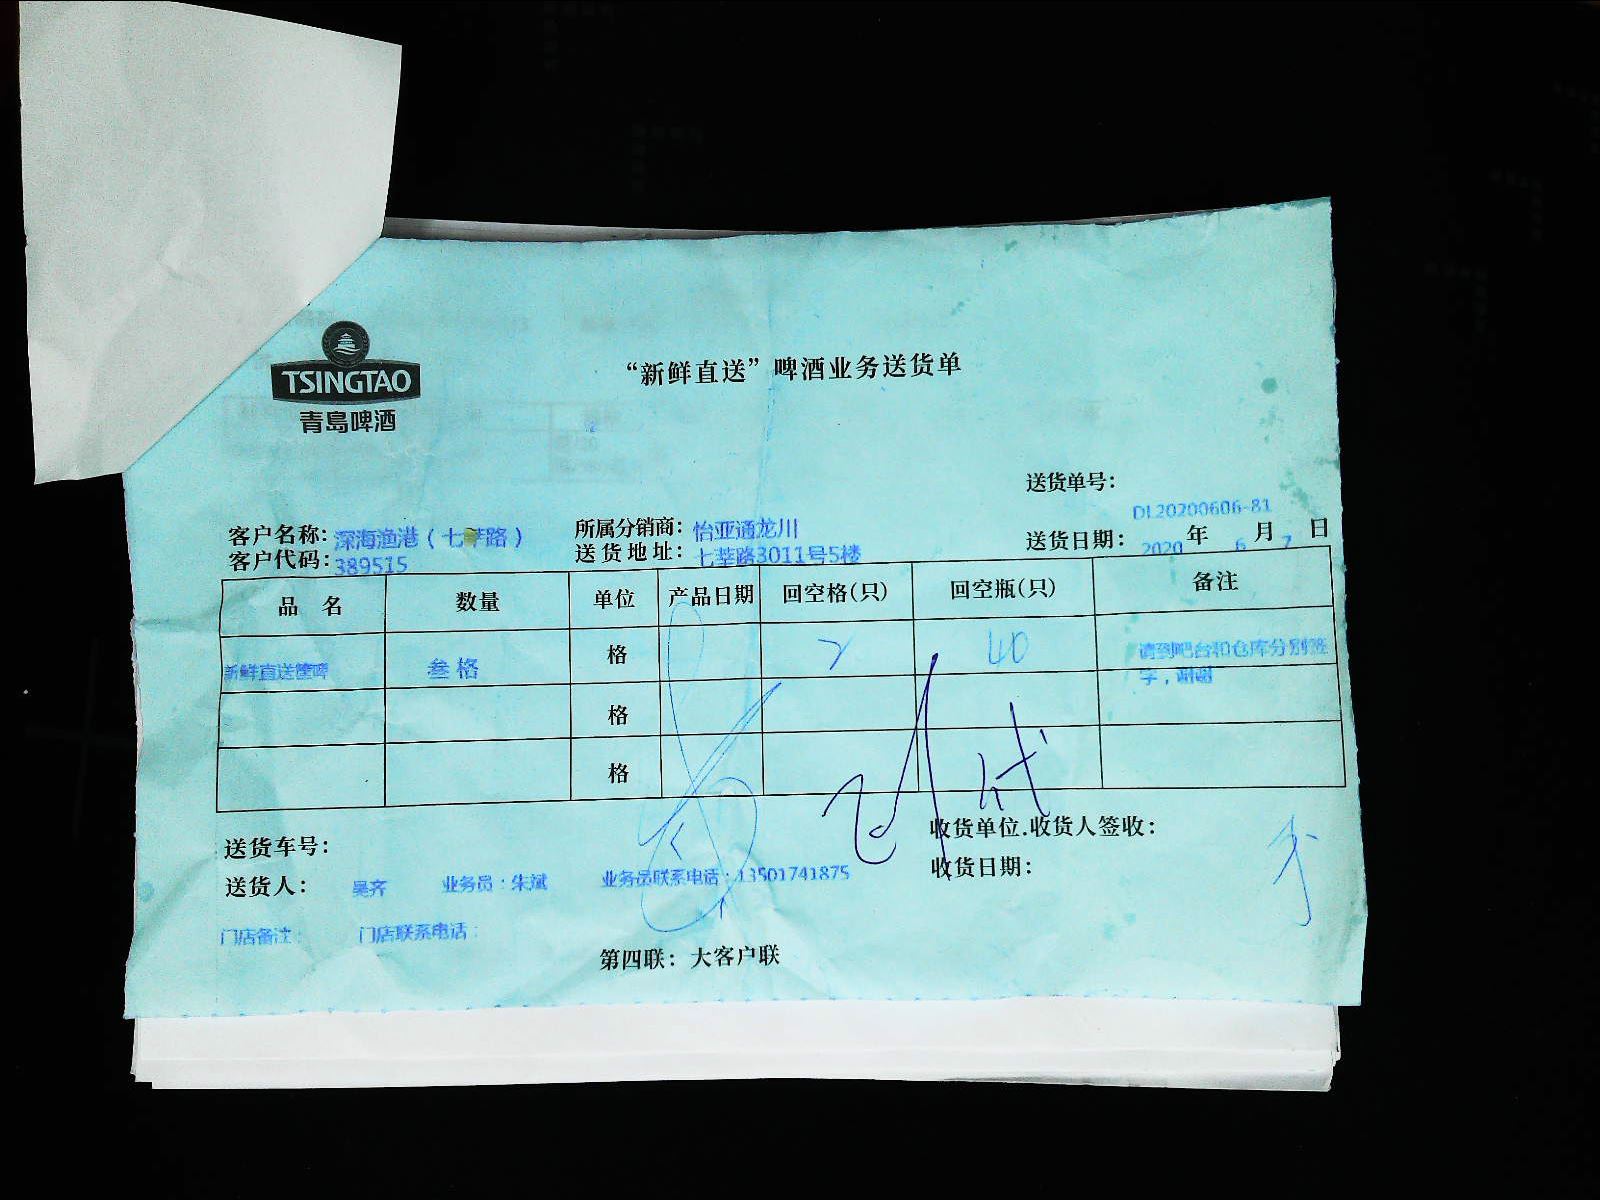 TSINGTAO
青岛啤酒
“新鲜直送”啤酒业务送货单
送货单号：
DL20200606-81
客户名称：深海渔港（七莘路） 所属分销商：怡亚通龙川 送货日期：2020 年 6 月 7 日
客户代码：389515 送货地址：七莘路3011号5楼
品 名 数量 单位 产品日期 回空格(只) 回空瓶(只) 备注
新鲜直送筐啤 叁格 格 2 40 请到吧台和仓库分别签字，谢谢
格
格
送货车号： 收货单位.收货人签收：
送货人： 吴齐 业务员：朱斌 业务员联系电话：13501741875 收货日期：
门店备注： 门店联系电话：
第四联：大客户联